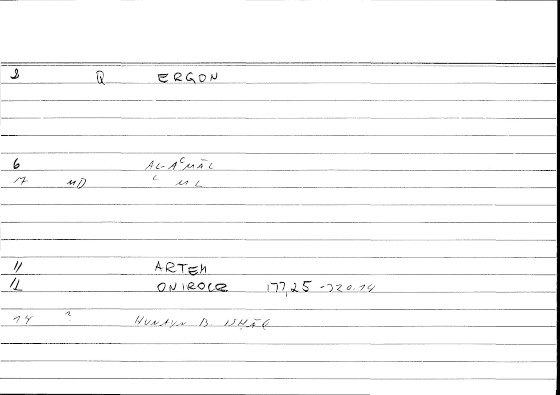 2 Q ERGON
6 AL-AʿMĀL
17 MD ʿML
11 ARTEM
12 ONIROCR 177,25
14 ? HUNAYN B. ISHĀQ